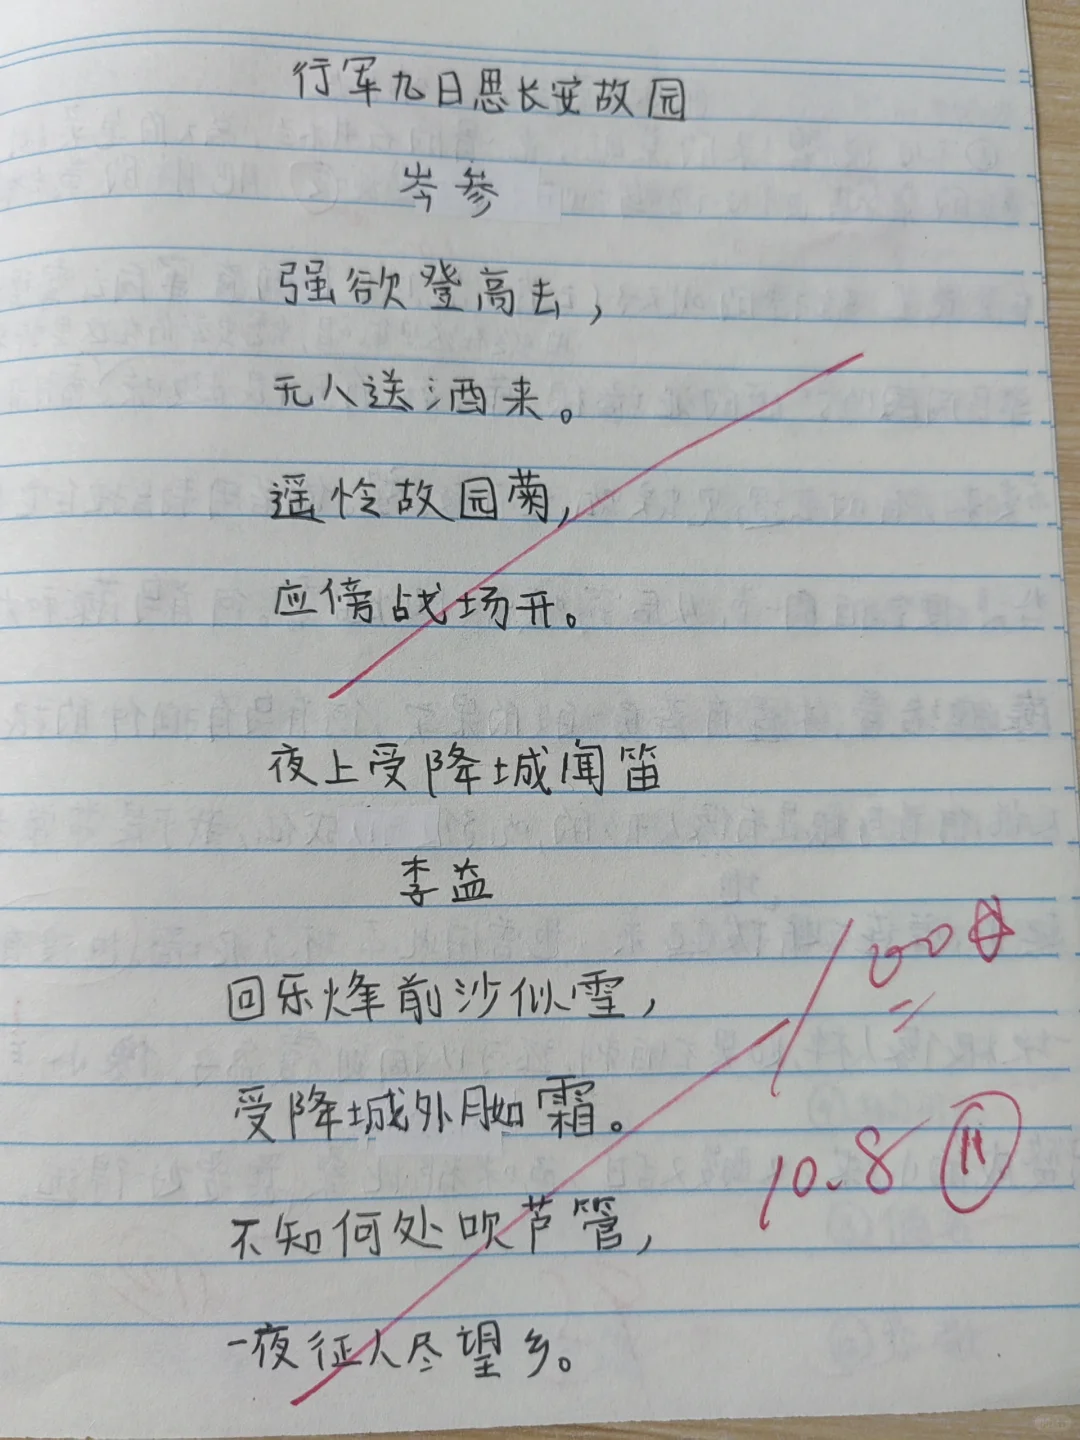 行军九日思长安故园
岑参
强欲登高去，
无人送酒来。
遥怜故园菊，
应傍战场开。
夜上受降城闻笛
李益
回乐烽前沙似雪，
受降城外月如霜。
不知何处吹芦管，
一夜征人尽望乡。
100
10.8